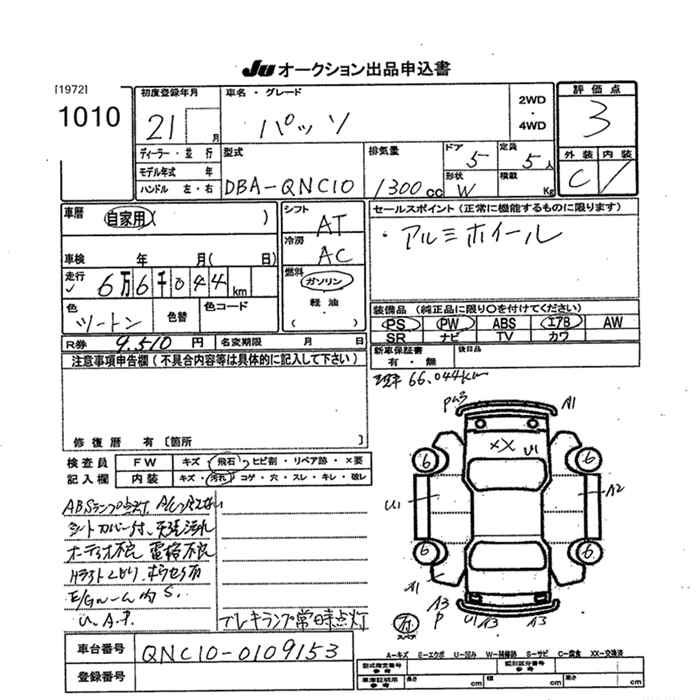 JU オークション出品申込書
[1972]
1010
初度登録年月
21 月
車名・グレード
パッソ
2WD
・
4WD
評価点
3
外装 内装
C
ディーラー・並行
モデル年式 年
ハンドル 左・右
型式
DBA-QNC10
排気量
1300cc
ドア
5
定員
5人
形状
W
積載
Kg
車歴
自家用 ( )
車検 年 月( 日)
走行
6万6千044km
色
ツートン
色替
色コード
R券 9,510円
名変期限 月 日
シフト
AT
冷房
AC
燃料
ガソリン
軽油
( )
セールスポイント(正常に機能するものに限ります)
・アルミホイール
装備品(純正品に限り○を付けてください)
PS PW ABS エアB AW
SR ナビ TV カワ
新車保証書
有・無
後日品
注意事項申告欄(不具合内容等は具体的に記入して下さい)
修復歴 有[箇所 ]
66,044km
検査員
記入欄
FW キズ・飛石・ヒビ割・リペア跡・×要
内装 キズ・汚れ・コゲ・穴・スレ・キレ・破レ
ABSランプ点灯
シートカバー付、天張汚れ
オーディオ不良 電格不良
E/Gルーム内S.
U.A.P.
ブレーキランプ常時点灯
A1
××
U1
6
6
U1
A2
6
6
A1
A3
P
U1
A3
A3
スペア
車台番号
QNC10-0109153
登録番号
A−キズ E−エクボ U−凹み W−補修跡 S−サビ C−腐食 XX−交換済
型式指定番号
参考
類別区分番号
参考
車庫証明用
参考
長さ cm
幅 cm
高さ cm